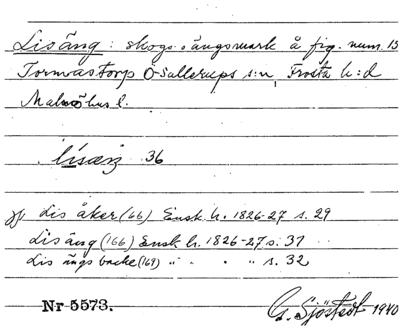 Lisäng: skogs o ängsmark å fig. num. 15
Tormastorp Ö Sallerups s:n, Frosta h:d
Malmöhus l.
lisæŋ 36
jfr Lis åker (66) Ensk. h. 1826-27 s. 29
Lis äng (166) Ensk h. 1826-27 s. 31
Lis ängs backe (169) " " " s. 32
Nr 5573.
G. Sjöstedt 1940